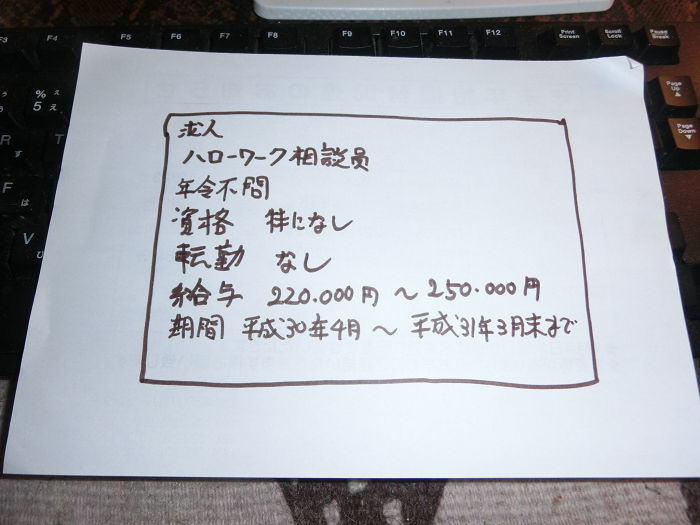 F3 F4 F5 F6 F7 F8 F9 F10 F11 F12 Print Screen Scroll Lock Pause Break
% え
5 え
Page Up
R
す
T
Page Down
F
は
V
求人
ハローワーク相談員
年令不問
資格 特になし
転勤 なし
給与 220.000円 〜 250.000円
期間 平成30年4月 〜 平成31年3月末まで